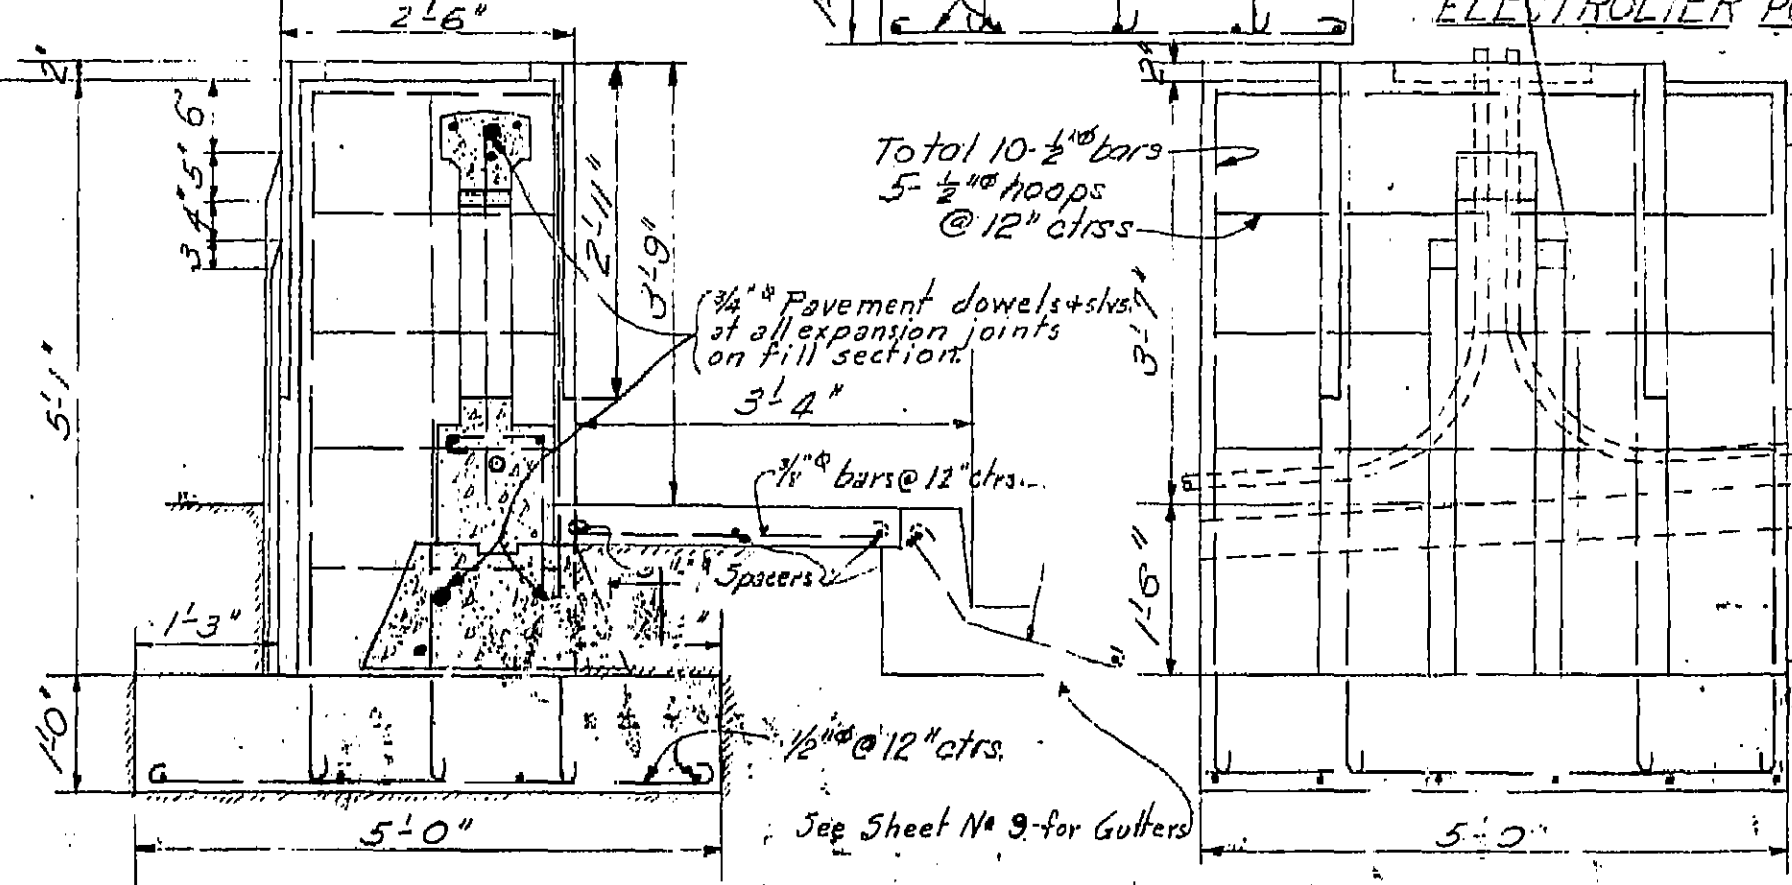 2'-6"
ELECTROLIER
2"
2"
6"
5"
4"
3
2'-11"
3'-9"
Total 10-½"ᶲ bars
5-½"ᶲ hoops
@ 12" ctrss
¾"ᶲ Pavement dowels & slvs.
at all expansion joints
on fill section.
5'-1"
3'-7"
3'-4"
⅜"ᶲ bars @ 12" ctrs.
Spacers
1'-3"
1'-6"
1'-0"
½"ᶲ @ 12" ctrs.
See Sheet Nº 9-for Gutters
5'-0"
5'-0"